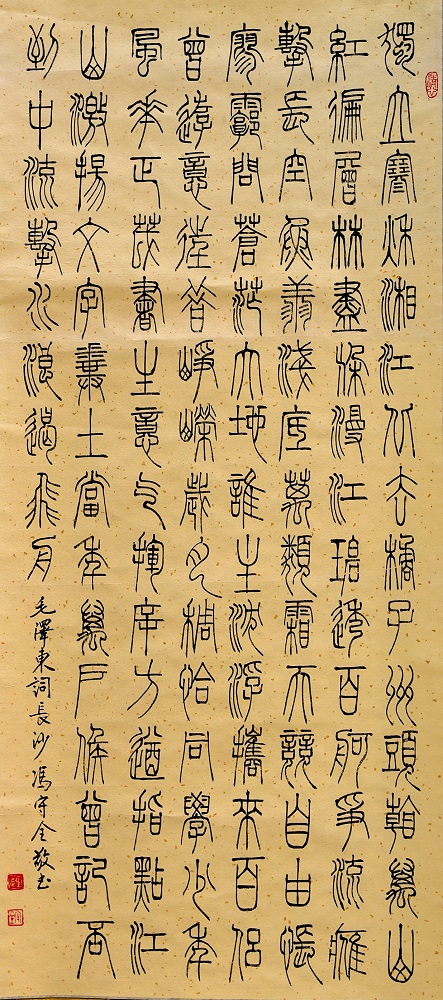 獨立寒秋湘江北去橘子州頭看萬山
紅遍層林盡染漫江碧透百舸爭流鷹
擊長空魚翔淺底萬類霜天競自由悵
寥廓問蒼茫大地誰主沈浮攜來百侶
曾遊意往昔崢嶸歲月稠恰同學少年
風華正茂書生意氣揮斥方遒指點江
山激揚文字糞土當年萬戶侯曾記否
到中流擊水浪遏飛舟
毛澤東詞長沙馮守全敬書